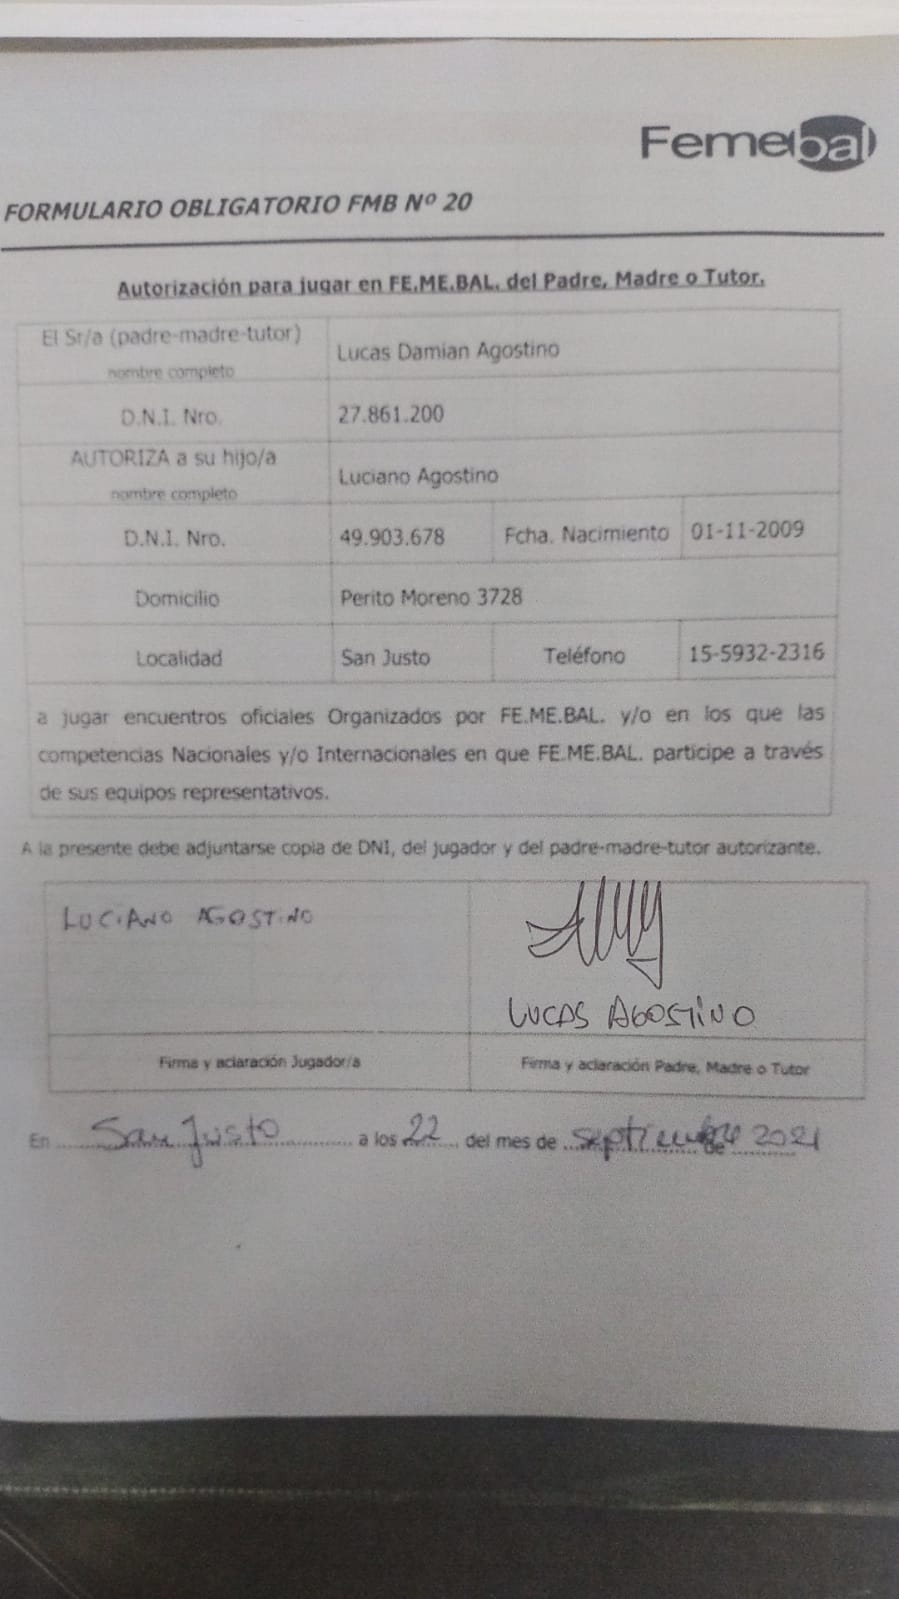 Femebal
FORMULARIO OBLIGATORIO FMB Nº 20
Autorización para jugar en FE.ME.BAL. del Padre, Madre o Tutor.
El Sr/a (padre-madre-tutor)
nombre completo
Lucas Damian Agostino
D.N.I. Nro.
27.861.200
AUTORIZA a su hijo/a
nombre completo
Luciano Agostino
D.N.I. Nro.
49.903.678
Fcha. Nacimiento
01-11-2009
Domicilio
Perito Moreno 3728
Localidad
San Justo
Teléfono
15-5932-2316
a jugar encuentros oficiales Organizados por FE.ME.BAL. y/o en los que las
competencias Nacionales y/o Internacionales en que FE.ME.BAL. participe a través
de sus equipos representativos.
A la presente debe adjuntarse copia de DNI, del jugador y del padre-madre-tutor autorizante.
LUCIANO AGOSTINO
LUCAS AGOSTINO
Firma y aclaración Jugador/a
Firma y aclaración Padre, Madre o Tutor
En San Justo a los 22 del mes de septiembre de 2021